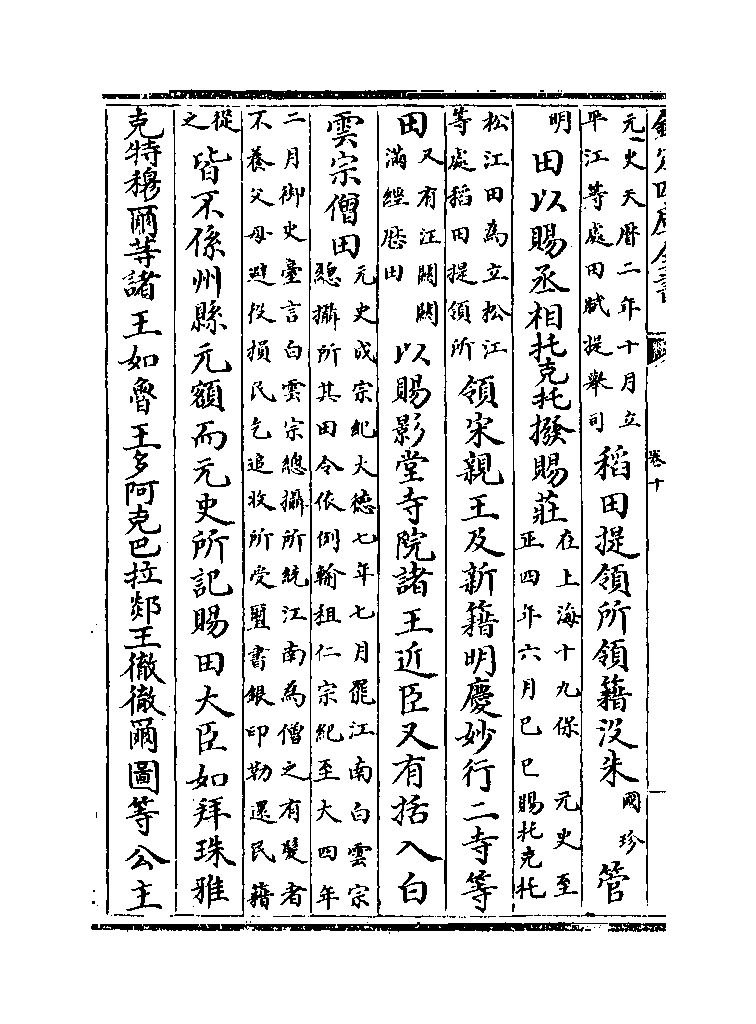 欽定四庫全書 卷十
元史天暦二年十月立
平江等處田賦提舉司
稻田提領所領籍没朱國珍管
明田以賜丞相托克托撥賜莊
在上海十九保 元史至
正四年六月己巳賜托克托
松江田為立松江
等處稻田提領所
領宋親王及新籍明慶妙行二寺等
田
又有江闗闗
滿經歴田
以賜影堂寺院諸王近臣又有括入白
雲宗僧田
元史成宗紀大德七年七月罷江南白雲宗
總攝所其田令依例輸租仁宗紀至大四年
二月御史臺言白雲宗總攝所統江南為僧之有髮者
不養父母避役損民乞追收所受璽書銀印勒還民籍
從之
皆不係州縣元額而元史所記賜田大臣如拜珠雅
克特穆爾等諸王如魯王多阿克巴拉郯王徹徹爾圖等公主